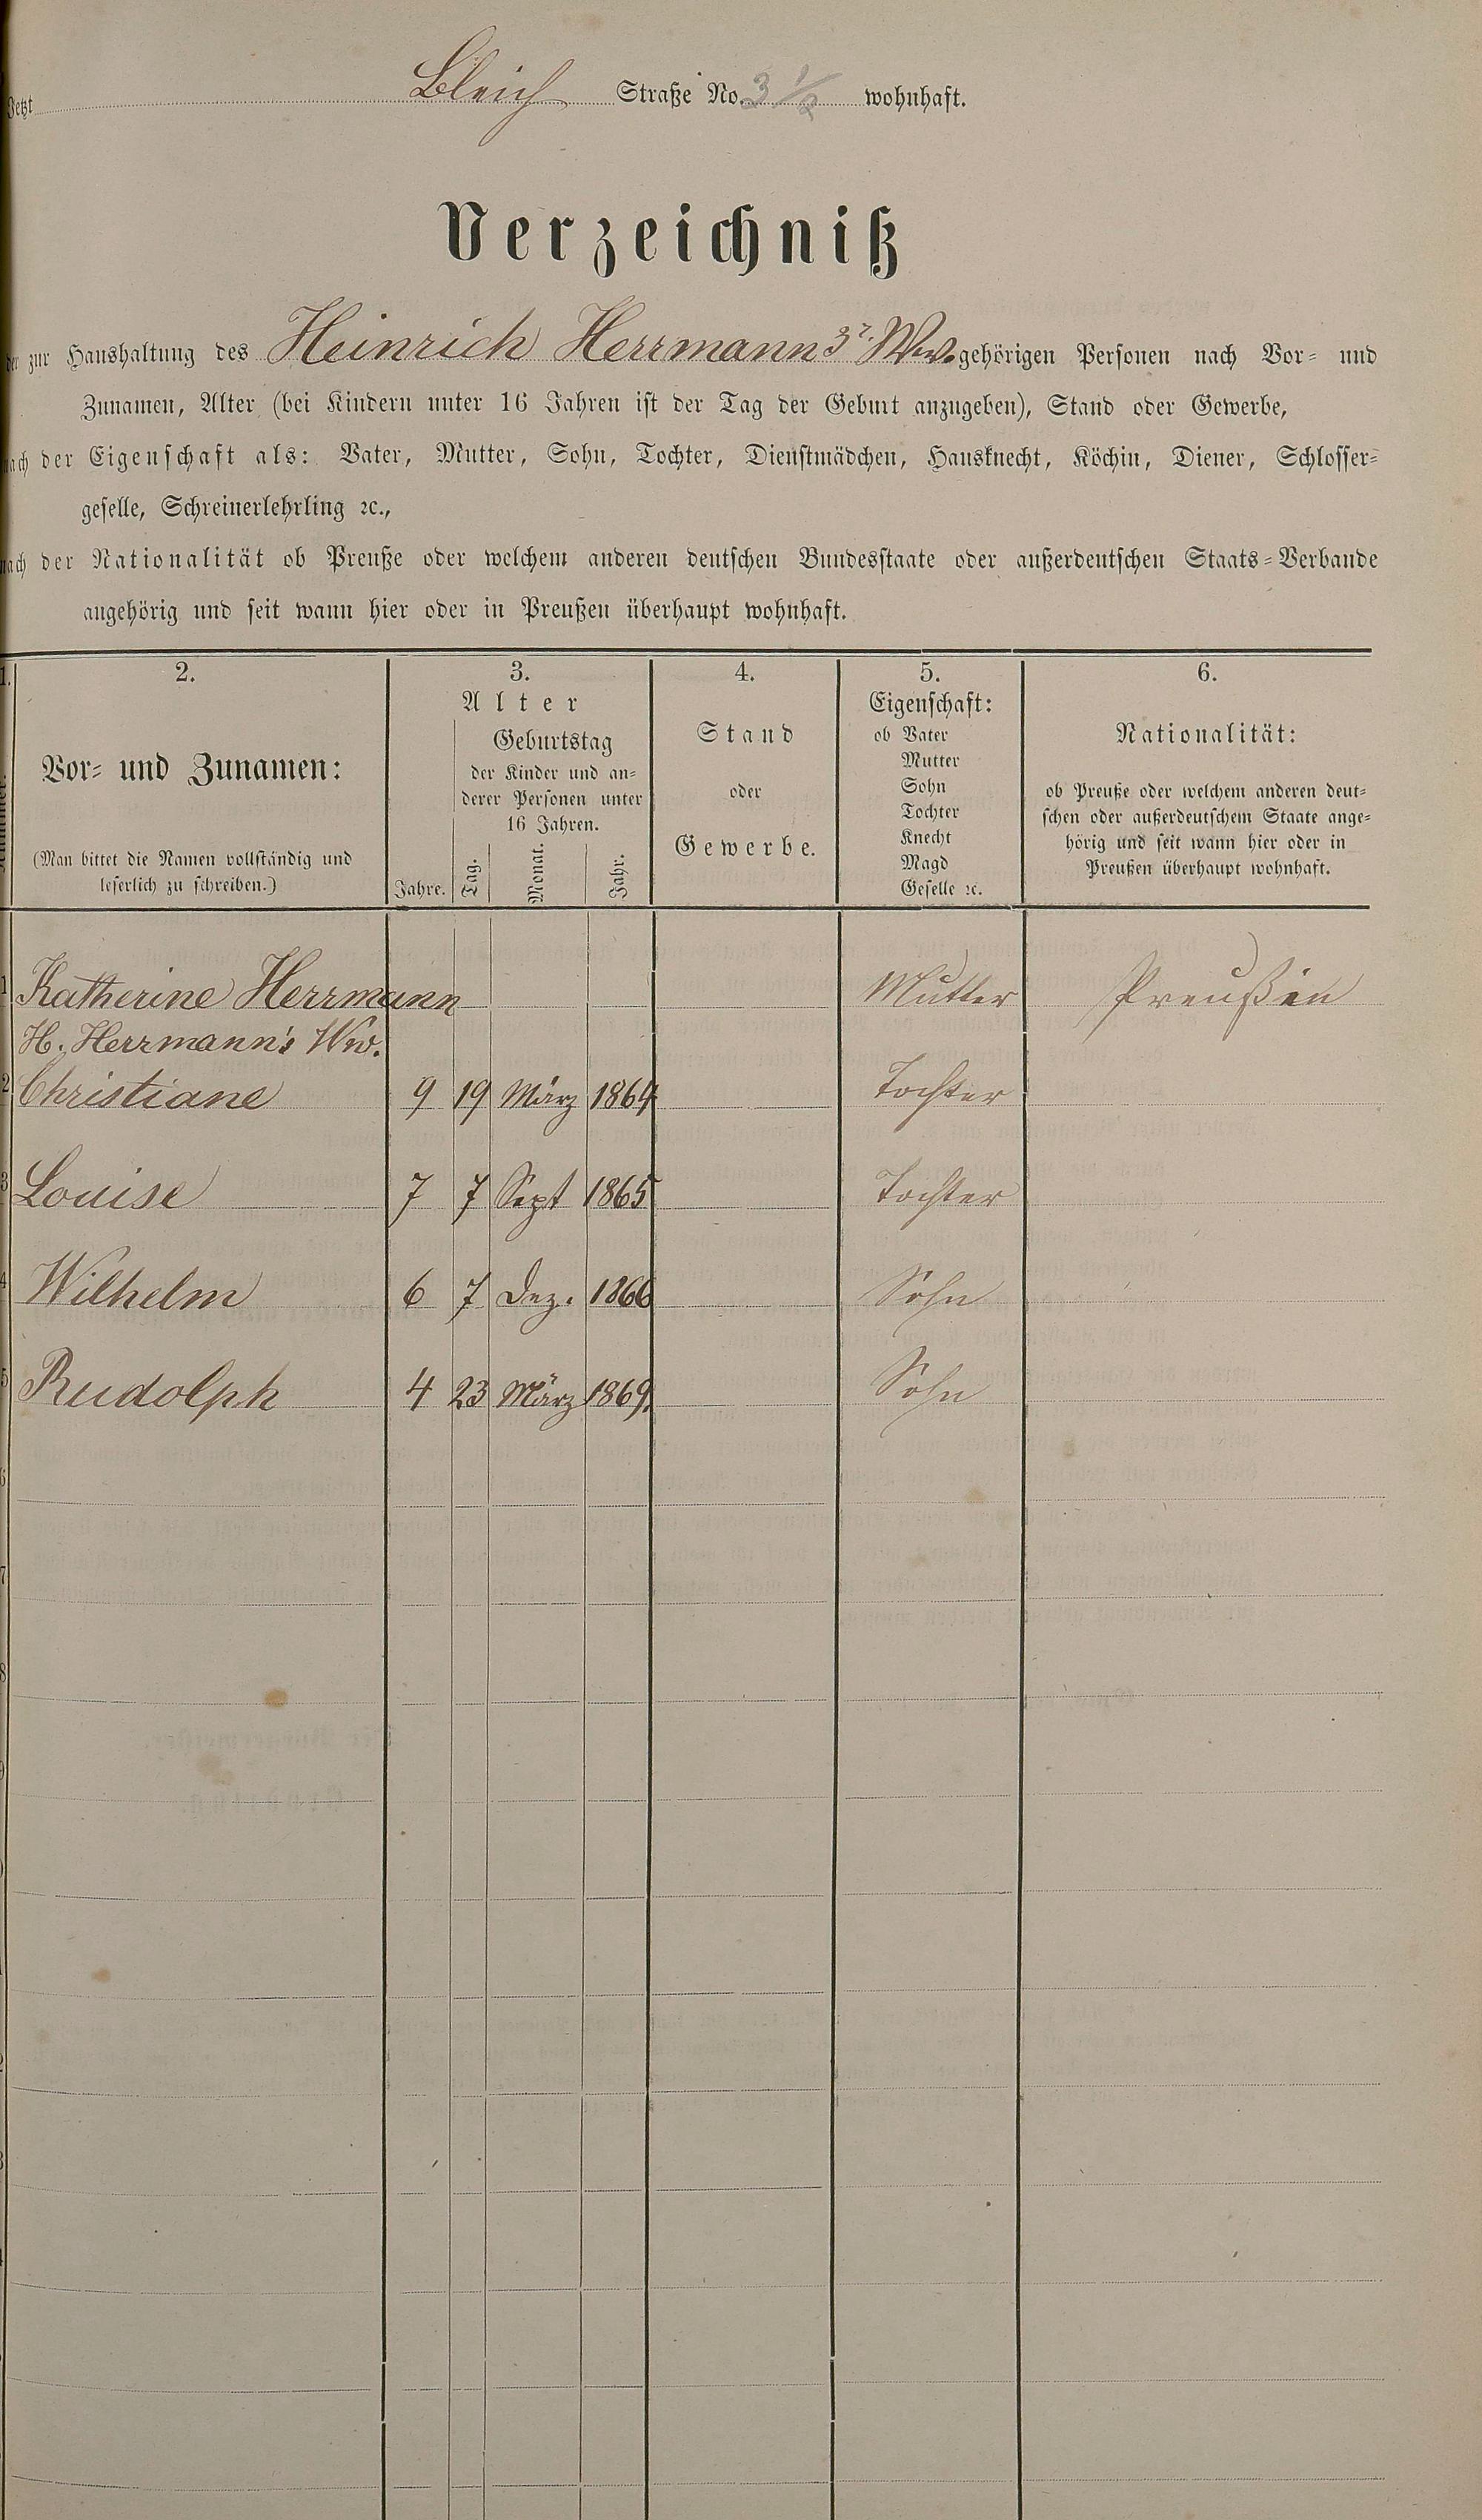 Jetzt Bleich Straße No. 3 1/2 wohnhaft.
Verzeichniß
der zur Haushaltung des Heinrich Herrmann 3r Ww. gehörigen Personen nach Vor- und
Zunamen, Alter (bei Kindern unter 16 Jahren ist der Tag der Geburt anzugeben), Stand oder Gewerbe,
nach der Eigenschaft als: Vater, Mutter, Sohn, Tochter, Dienstmädchen, Hausknecht, Köchin, Diener, Schlosser-
geselle, Schreinerlehrling ꝛc.,
nach der Nationalität ob Preuße oder welchem anderen deutschen Bundesstaate oder außerdeutschen Staats-Verbande
angehörig und seit wann hier oder in Preußen überhaupt wohnhaft.
1. 2. 3. 4. 5. 6.
Vor- und Zunamen:
(Man bittet die Namen vollständig und
leserlich zu schreiben.)
Alter
Geburtstag
der Kinder und an-
derer Personen unter
16 Jahren.
Jahre. Tag. Monat. Jahr.
Stand
oder
Gewerbe.
Eigenschaft:
ob Vater
Mutter
Sohn
Tochter
Knecht
Magd
Geselle ꝛc.
Nationalität:
ob Preuße oder welchem anderen deut-
schen oder außerdeutschem Staate ange-
hörig und seit wann hier oder in
Preußen überhaupt wohnhaft.
1 Katherine Herrmann Mutter Preußin
H. Herrmann's Ww.
2 Christiane 9 19 März 1864 Tochter
3 Louise 7 7 Sept 1865 Tochter
4 Wilhelm 6 7 Dez. 1866 Sohn
5 Rudolph 4 23 März 1869. Sohn
6
7
8